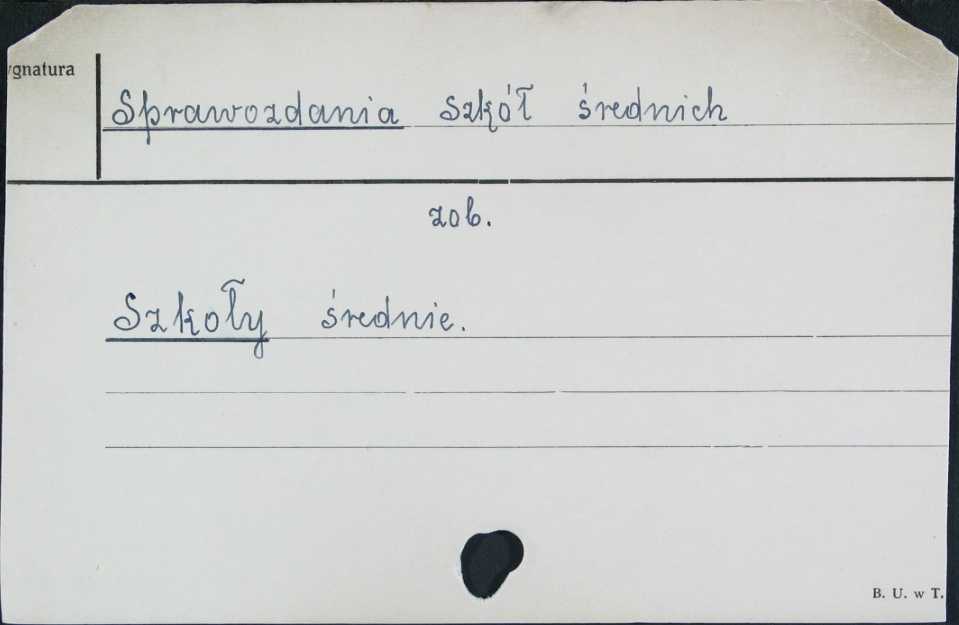 ygnatura
Sprawozdania szkół średnich
zob.
Szkoły średnie.
B. U. w T.